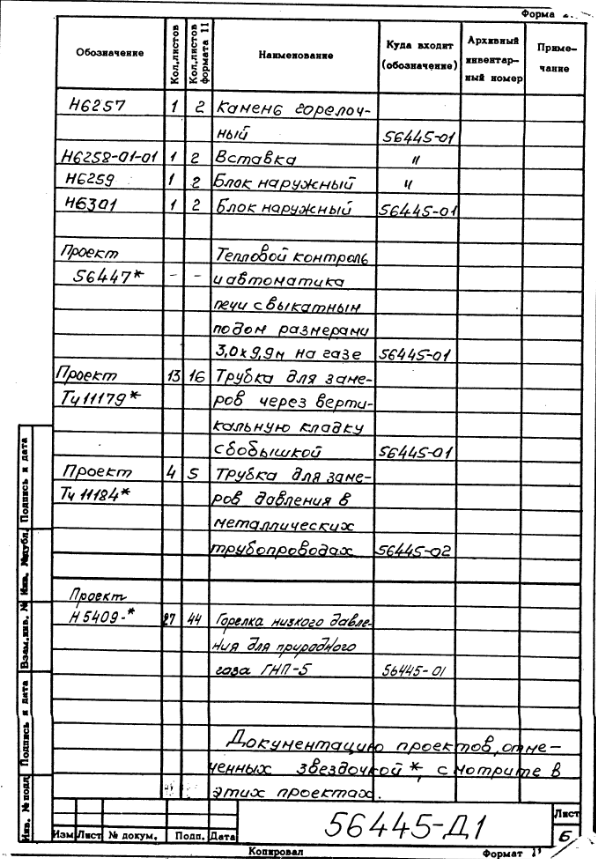 Форма
Обозначение | Кол.листов | Кол.листов формата 11 | Наименование | Куда входит (обозначение) | Архивный инвентарный номер | Примечание
Н6257 1 2 Камень горелоч-
ный 56445-01
Н6258-01-01 1 2 Вставка "
Н6259 1 2 Блок наружный "
Н6301 1 2 Блок наружный 56445-01
Проект Тепловой контроль
56447* - - и автоматика
печи с выкатным
подом размерами
3,0х9,9м на газе 56445-01
Проект 13 16 Трубка для заме-
Тч11179* ров через верти-
кальную кладку
с бобышкой 56445-01
Проект 4 5 Трубка для заме-
Тч11184* ров давления в
металлических
трубопроводах 56445-02
Проект
Н5409-* 27 44 Горелка низкого давле-
ния для природного
газа ГНП-5 56445-01
Документацию проектов, отме-
ченных звездочкой *, смотрите в
этих проектах.
Инв. № подл. Подпись и дата Взам.инв. № Инв. № дубл. Подпись и дата
Изм Лист № докум. Подп. Дата
56445-Д1
Лист
6
Копировал Формат 11